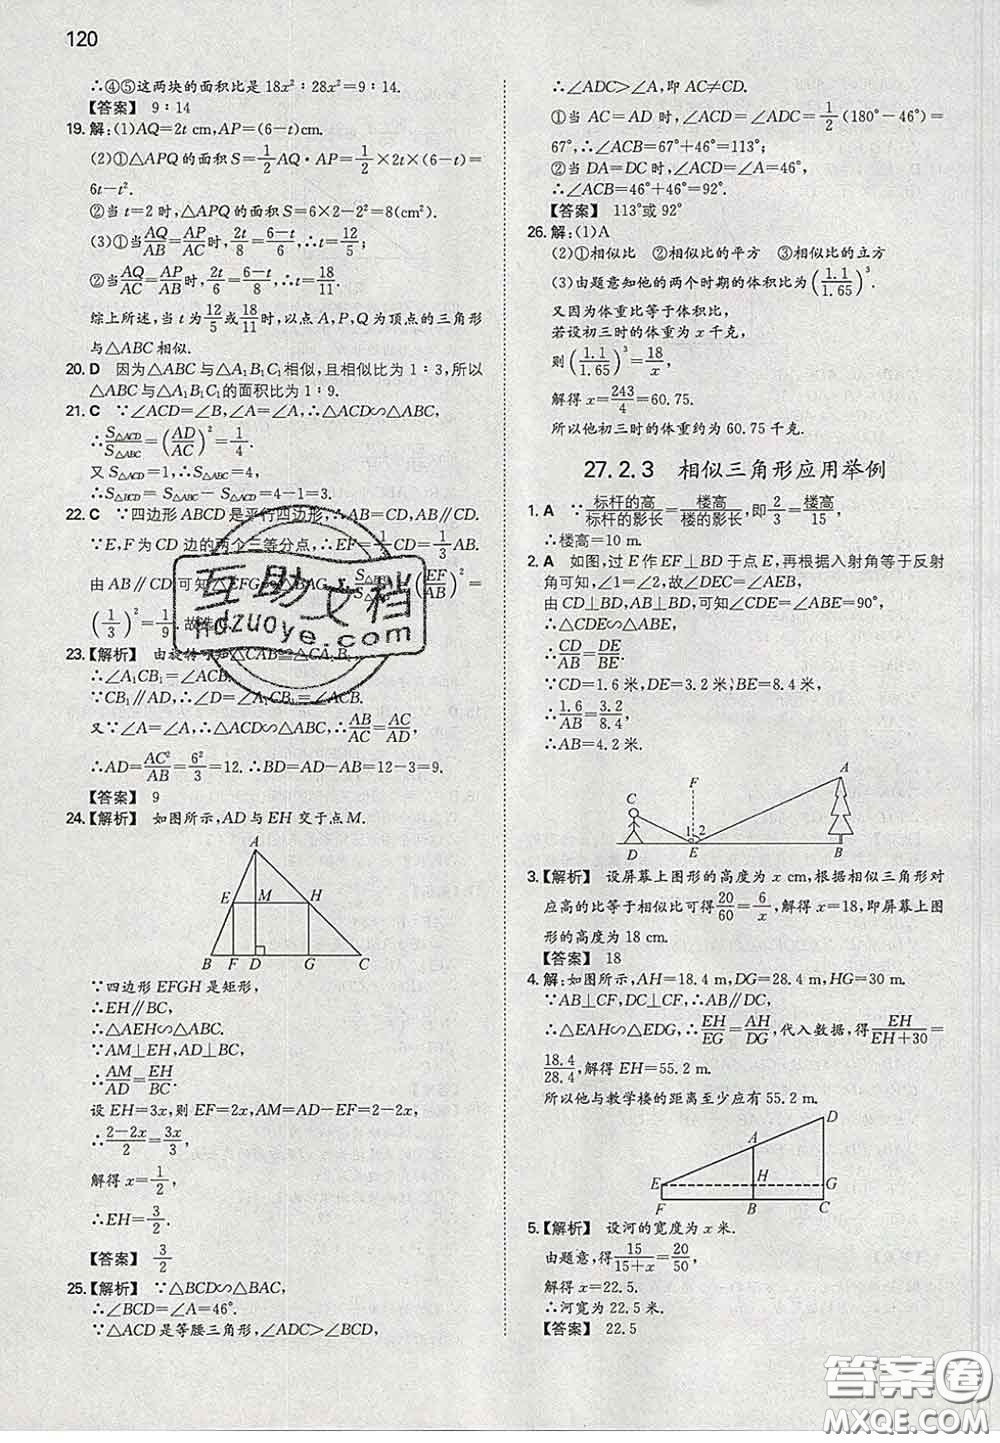 120
∴④⑤这两块的面积比是18x²∶28x²=9∶14.
【答案】 9∶14
19. 解:(1)AQ=2t cm,AP=(6-t)cm.
(2)①△APQ的面积S=1/2 AQ·AP=1/2×2t×(6-t)=
6t-t².
②当t=2时,△APQ的面积S=6×2-2²=8(cm²).
(3)①当AQ/AB=AP/AC时,2t/8=(6-t)/6,∴t=12/5;
②当AQ/AC=AP/AB时,2t/6=(6-t)/8,∴t=18/11.
综上所述,当t为12/5或18/11时,以点A,P,Q为顶点的三角形
与△ABC相似.
20. D 因为△ABC与△A₁B₁C₁相似,且相似比为1∶3,所以
△ABC与△A₁B₁C₁的面积比为1∶9.
21. C ∵∠ACD=∠B,∠A=∠A,∴△ACD∽△ABC,
∴S△ACD/S△ABC=(AD/AC)²=1/4.
又S△ACD=1,∴S△ABC=4,
∴S△BCD=S△ABC-S△ACD=4-1=3.
22. C ∵四边形ABCD是平行四边形,∴AB=CD,AB∥CD.
∵E,F为CD边的两个三等分点,∴EF=1/3 CD=1/3 AB.
由AB∥CD可知△EFG∽△BAG,∴=(EF/AB)²=
(1/3)²=1/9.故选C.
23. 【解析】 由旋转可知△CAB≌△CA₁B₁,
∴∠A₁CB₁=∠ACB.
∵CB₁∥AD,∴∠D=∠A₁CB₁=∠ACB.
又∵∠A=∠A,∴△ACD∽△ABC,∴AB/AC=AC/AD,
∴AD=AC²/AB=6²/3=12.∴BD=AD-AB=12-3=9.
【答案】 9
24. 【解析】 如图所示,AD与EH交于点M.
A
E M H
B F D G C
∵四边形EFGH是矩形,
∴EH∥BC.
∴△AEH∽△ABC.
∵AM⊥EH,AD⊥BC,
∴AM/AD=EH/BC.
设EH=3x,则EF=2x,AM=AD-EF=2-2x,
∴(2-2x)/2=3x/3,
解得x=1/2,
∴EH=3/2.
【答案】 3/2
25. 【解析】 ∵△BCD∽△BAC,
∴∠BCD=∠A=46°.
∵△ACD是等腰三角形,∠ADC>∠BCD,
∴∠ADC>∠A,即AC≠CD.
①当AC=AD时,∠ACD=∠ADC=1/2(180°-46°)=
67°,∴∠ACB=67°+46°=113°;
②当DA=DC时,∠ACD=∠A=46°,
∴∠ACB=46°+46°=92°.
【答案】 113°或92°
26. 解:(1)A
(2)①相似比 ②相似比的平方 ③相似比的立方
(3)由题意知他的两个时期的体积比为(1.1/1.65)³
又因为体重比等于体积比,
若设初三时的体重为x千克,
则(1.1/1.65)³=18/x,
解得x=243/4=60.75.
所以他初三时的体重约为60.75千克.
27.2.3 相似三角形应用举例
1. A ∵标杆的高/标杆的影长=楼高/楼高的影长,即2/3=楼高/15,
∴楼高=10 m.
2. A 如图,过E作EF⊥BD于点E,再根据入射角等于反射
角可知,∠1=∠2,故∠DEC=∠AEB,
由CD⊥BD,AB⊥BD,可知∠CDE=∠ABE=90°,
∴△CDE∽△ABE,
∴CD/AB=DE/BE.
∵CD=1.6米,DE=3.2米,BE=8.4米,
∴1.6/AB=3.2/8.4,
∴AB=4.2米.
F A
C
1 2
D E B
3. 【解析】 设屏幕上图形的高度为x cm,根据相似三角形对
应高的比等于相似比可得20/60=6/x,解得x=18,即屏幕上图
形的高度为18 cm.
【答案】 18
4. 解:如图所示,AH=18.4 m,DG=28.4 m,HG=30 m.
∵AB⊥CF,DC⊥CF,∴AB∥DC,
∴△EAH∽△EDG,∴EH/EG=AH/DG,代入数据,得EH/(EH+30)=
18.4/28.4,解得EH=55.2 m.
所以他与教学楼的距离至少应有55.2 m.
D
A
E H G
F B C
5. 【解析】 设河的宽度为x米.
由题意,得15/(15+x)=20/50,
解得x=22.5.
∴河宽为22.5米.
【答案】 22.5
互助文档
hdzuoye.com
答案圈
MXQE.COM